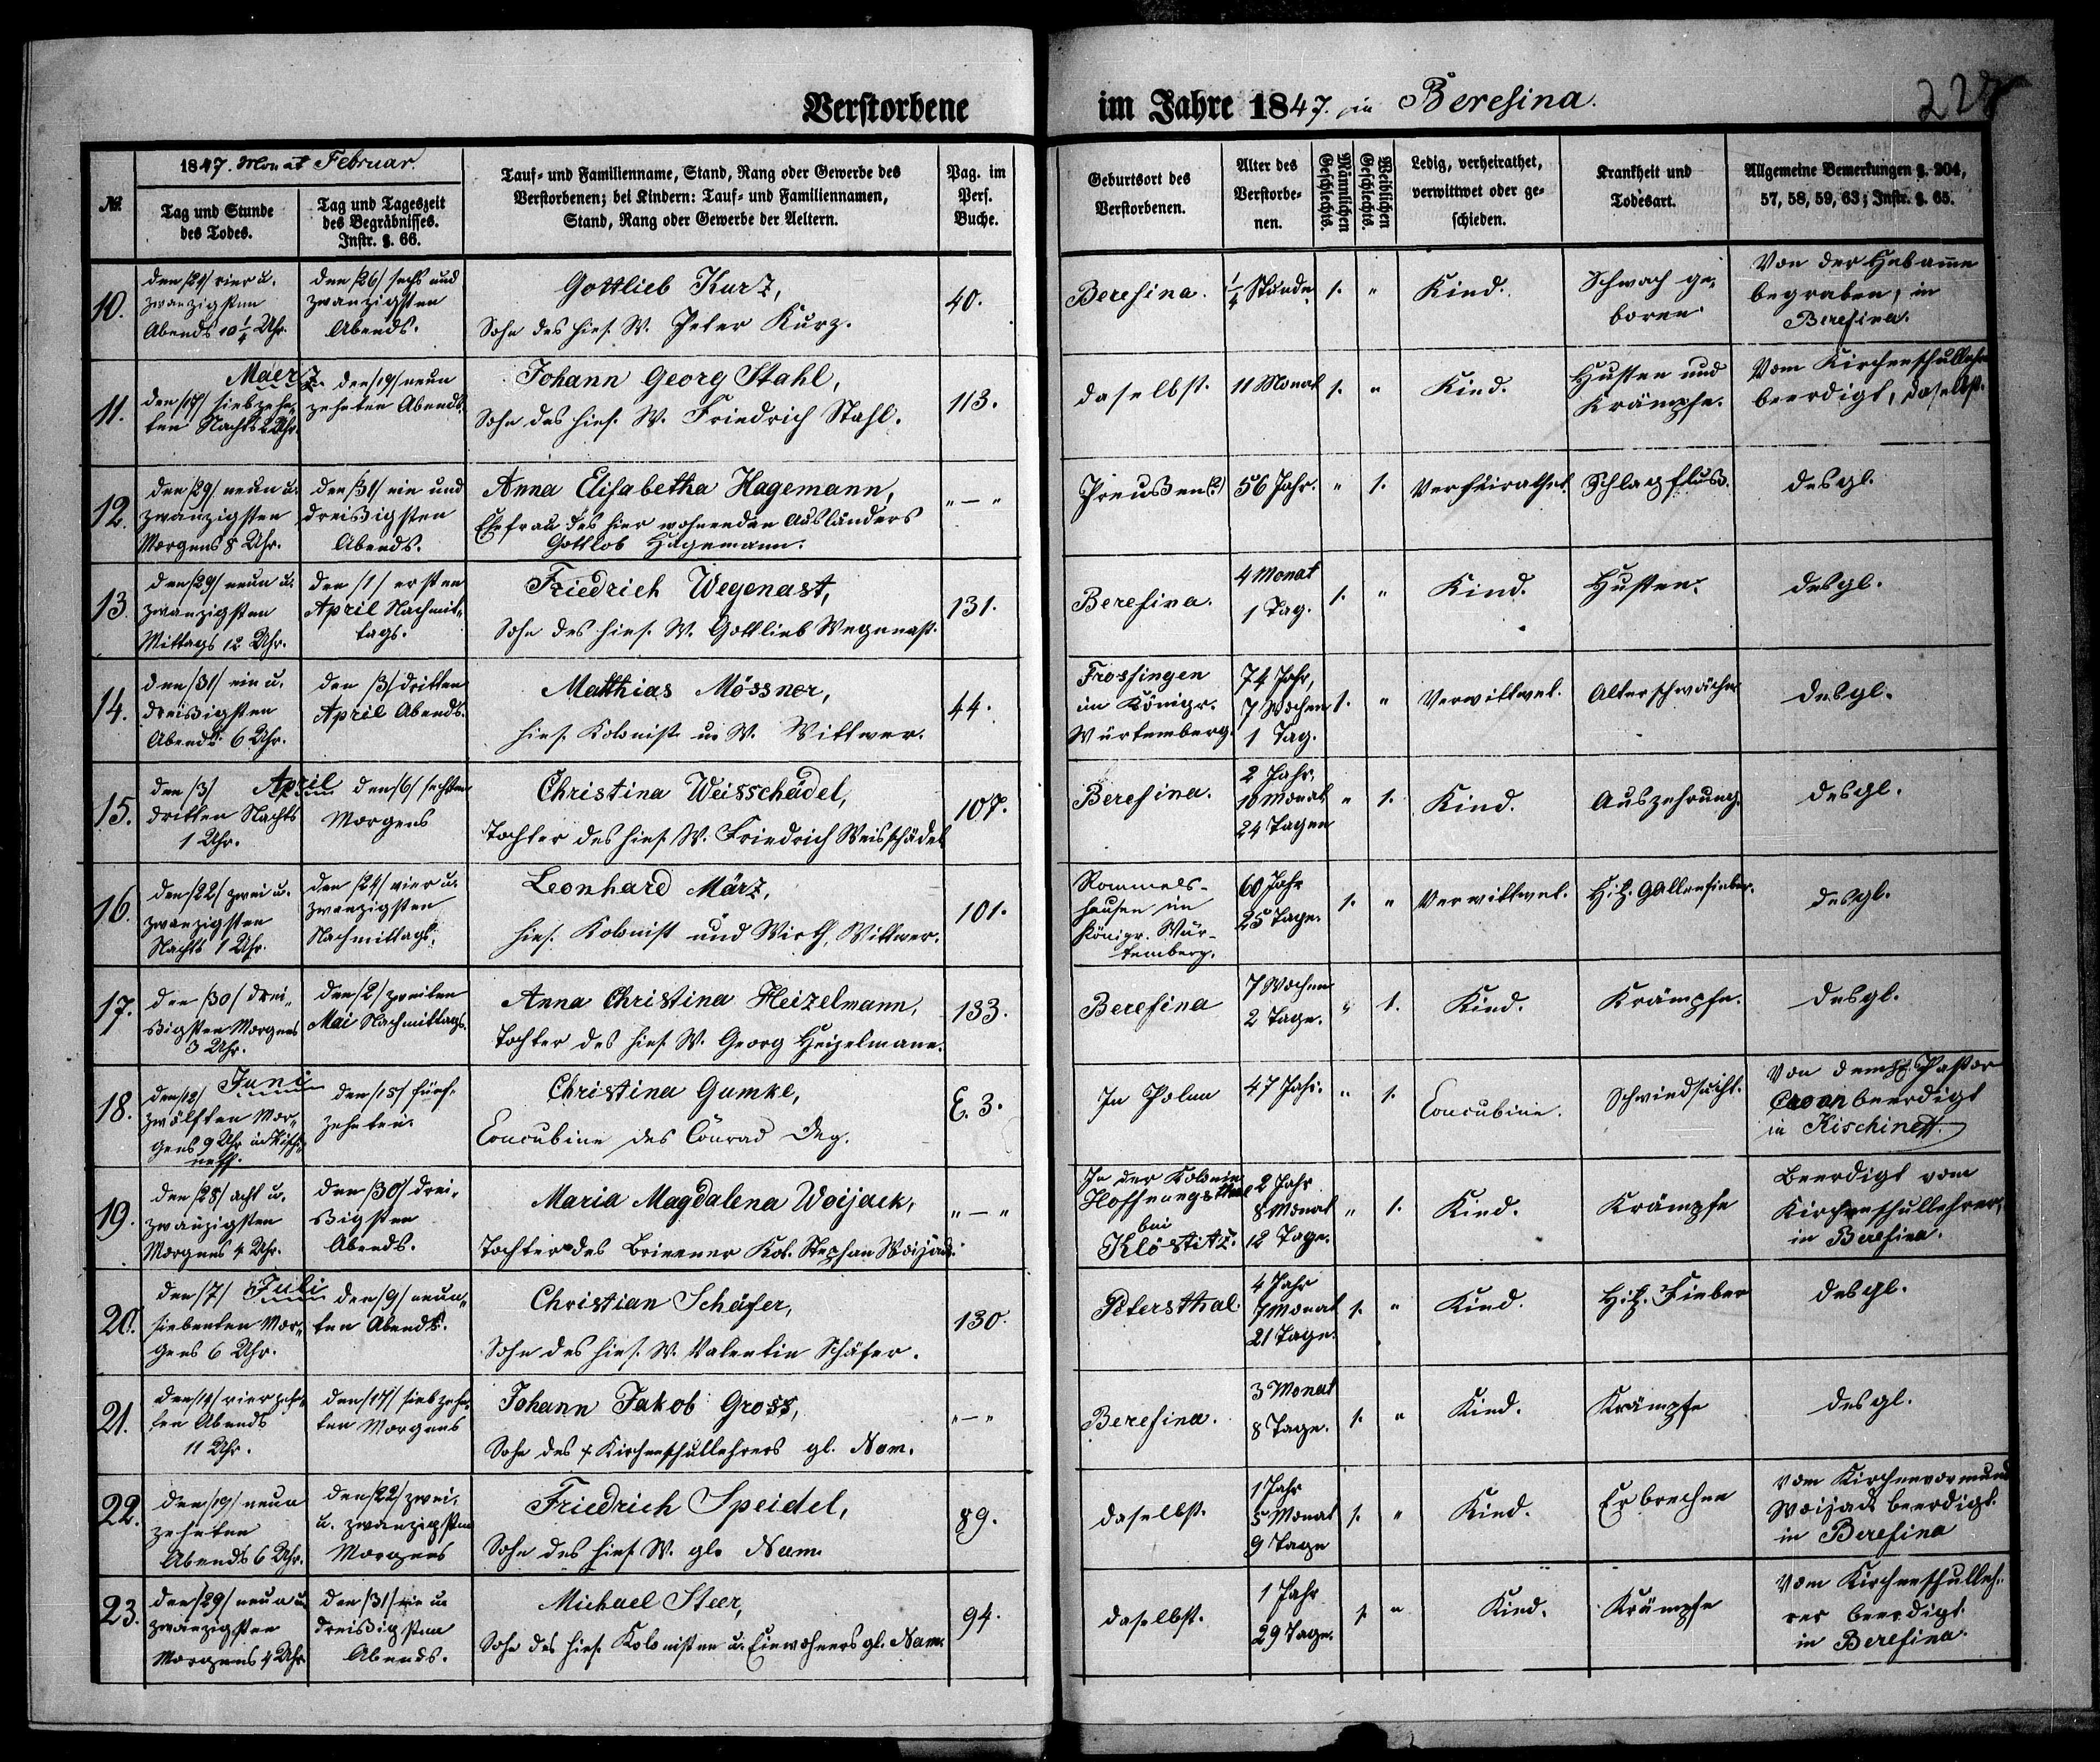 Verstorbene im Jahre 1847. in Beresina.
1847. Monat Februar.
№.
Tag und Stunde des Todes.
Tag und Tageszeit des Begräbnisses. Instr. §. 66.
Tauf- und Familienname, Stand, Rang oder Gewerbe des
Verstorbenen; bei Kindern: Tauf- und Familiennamen,
Stand, Rang oder Gewerbe der Aeltern.
Pag. im Pers. Buche.
Geburtsort des Verstorbenen.
Alter des Verstorbenen.
Männlichen Geschlechts.
Weiblichen Geschlechts.
Ledig, verheirathet, verwittwet oder geschieden.
Krankheit und Todesart.
Allgemeine Bemerkungen §. 204,
57, 58, 59, 63; Instr. §. 65.
10.
den /24/ vier u.
zwanzigsten
Abends 10 1/4 Uhr.
den /26/ sechs und
zwanzigsten
Abends.
Gottlieb Kurz,
Sohn des hies. W. Peter Kurz.
40.
Beresina.
1/4 Stunde
1.
"
Kind.
Schwach ge-
boren.
Von der Hebamme
begraben, in
Beresina.
11.
Maerz.
den /17/ siebzehn-
ten Nachts 2 Uhr.
den /19/ neun
zehnten Abends.
Johann Georg Stahl,
Sohn des hies. W. Friedrich Stahl.
113.
daselbst.
11 Monat
1.
"
Kind.
Husten und
Krämpfe.
Vom Kirchenschullehrer
beerdigt, daselbst.
12.
den /29/ neun u.
zwanzigsten
Morgens 8 Uhr.
den /31/ ein und
dreißigsten
Abends.
Anna Elisabetha Hagemann,
Ehefrau des hier wohnenden Ausländers
Gottlob Hagemann.
" — "
Preußen (?)
56 Jahr.
"
1.
Verheirathet.
Schlagfluß.
desgl.
13.
den /29/ neun u.
zwanzigsten
Mittags 12 Uhr.
den /1/ ersten
April Nachmit-
tags.
Friedrich Wegenast,
Sohn des hies. W. Gottlieb Wegenast.
131.
Beresina.
4 Monat
1 Tag.
1.
"
Kind.
Husten.
desgl.
14.
den /31/ ein u.
dreißigsten
Abends 6 Uhr.
den /3/ dritten
April Abends.
Matthias Mössner,
hies. Kolonist u. W. Wittwer.
44.
Frossingen
im Königr.
Würtemberg.
74 Jahr,
7 Wochen
1 Tag.
1.
"
Verwittwet.
Altersschwäche
desgl.
15.
April
den /3/
dritten Nachts
1 Uhr.
den /6/ sechsten
Morgens
Christina Weisschädel,
Tochter des hies. W. Friedrich Weisschädel
107.
Beresina.
2 Jahr,
10 Monat
24 Tagen
"
1.
Kind.
Auszehrung.
desgl.
16.
den /22/ zwei u.
zwanzigsten
Nachts 1 Uhr.
den /24/ vier u.
zwanzigsten
Nachmittags.
Leonhard März,
hies. Kolonist und Wirth, Wittwer.
101.
Rommels-
hausen im
Königr. Wür-
temberg.
60 Jahr
25 Tage.
1.
"
Verwittwet.
Hitz. Gallenfieber.
desgl.
17.
den /30/ drei-
ßigsten Morgens
3 Uhr.
den /2/ zweiten
Mai Nachmittags.
Anna Christina Heizelmann,
Tochter des hies. W. Georg Heizelmann.
133.
Beresina
7 Wochen
2 Tage.
"
1.
Kind.
Krämpfe.
desgl.
18.
Juni
den /12/
zwölften Mor-
gens 9 Uhr in Kischi-
neff.
den /15/ fünf-
zehnten.
Christina Gumke,
Concubine des Conrad Deg.
E. 3.
In Polen
47 Jahr.
"
1.
Concubine.
Schwindsucht.
Von dem H. Pastor
beerdigt
in Kischineff.
19.
den /28/ acht u.
zwanzigsten
Morgens 4 Uhr.
den /30/ drei-
ßigsten
Abends.
Maria Magdalena Woijack,
Tochter des Brienner Kol. Stephan Woijack.
" — "
In der Kolonie
Hoffnungsthal
bei
Klöstitz.
2 Jahr
8 Monat
12 Tage.
"
1.
Kind.
Krämpfe
Beerdigt vom
Kirchenschullehrer,
in Beresina.
20.
Juli
den /7/
siebenten Mor-
gens 6 Uhr.
den /9/ neun-
ten Abends.
Christian Schäfer,
Sohn des hies. W. Valentin Schäfer.
130.
Petersthal
4 Jahr
7 Monat
21 Tage.
1.
"
Kind.
Hitz. Fieber
desgl.
21.
den /14/ vierzehn-
ten Abends
11 Uhr.
den /17/ siebzehn-
ten Morgens
Johann Jakob Gross,
Sohn des † Kirchenschullehrers gl. Nam.
" — "
Beresina.
3 Monat
8 Tage.
1.
"
Kind.
Krämpfe
desgl.
22.
den /19/ neun
zehnten
Abends 6 Uhr.
den /22/ zwei-
u. zwanzigsten
Morgens
Friedrich Speidel,
Sohn des hies. W. gl. Nam.
89.
daselbst.
1 Jahr
5 Monat
9 Tage
1.
"
Kind.
Erbrechen
Vom Kirchenvormund
Woijack beerdigt.
in Beresina
23.
den /29/ neun u.
zwanzigsten
Morgens 4 Uhr.
den /31/ ein u.
dreißigsten
Abends.
Michael Steer,
Sohn des hies. Kolonisten u. Einwohners gl. Nam.
94.
daselbst.
1 Jahr
29 Tage.
1.
"
Kind.
Krämpfe
Vom Kirchenschulleh-
rer beerdigt.
in Beresina.